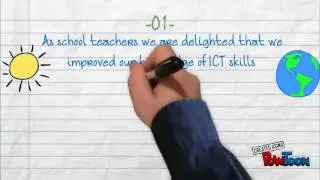 -01-
As school teachers we are delighted that we
improved our ge of ICT skills
CREATED USING
POWTOON